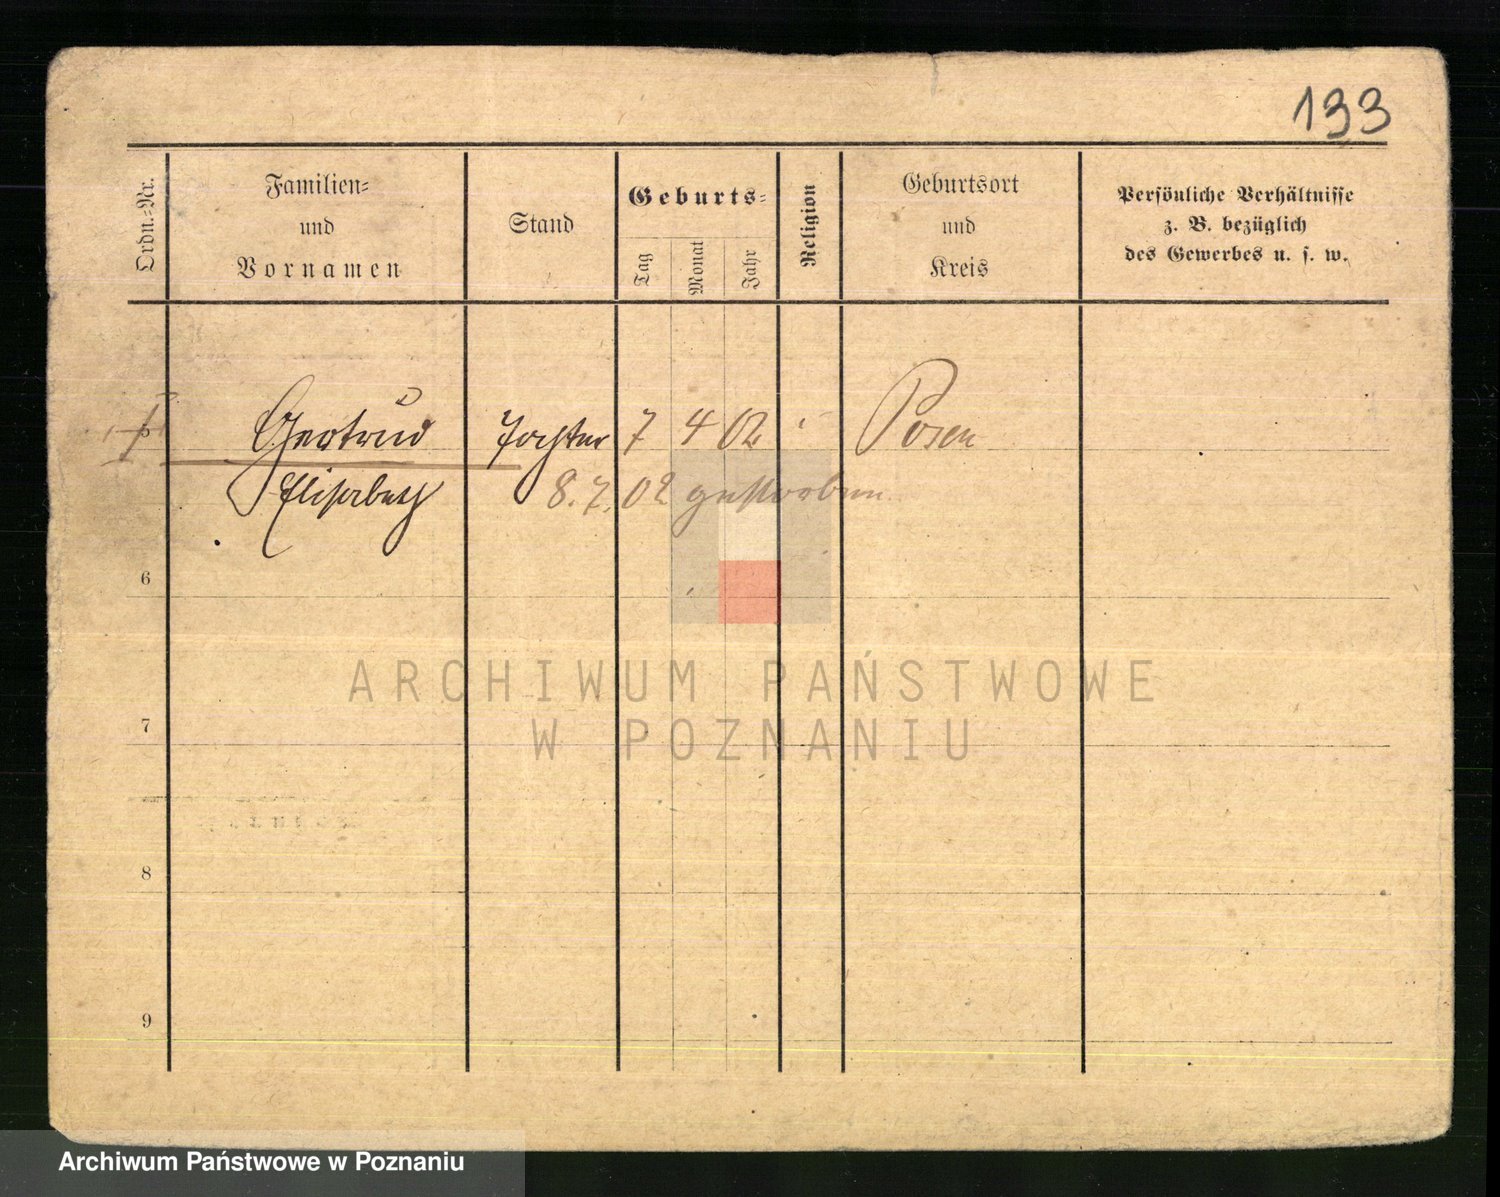 133
Ordn.-Nr.
Familien-
und
Vornamen
Stand
Geburts-
Tag
Monat
Jahr
Religion
Geburtsort
und
Kreis
Persönliche Verhältnisse
z. B. bezüglich
des Gewerbes u. s. w.
5 Gertrud Tochter 7 4 02 Posen
Elisabeth 8. 7. 02 gestorben
6
ARCHIWUM PAŃSTWOWE
W POZNANIU
7
8
9
Archiwum Państwowe w Poznaniu